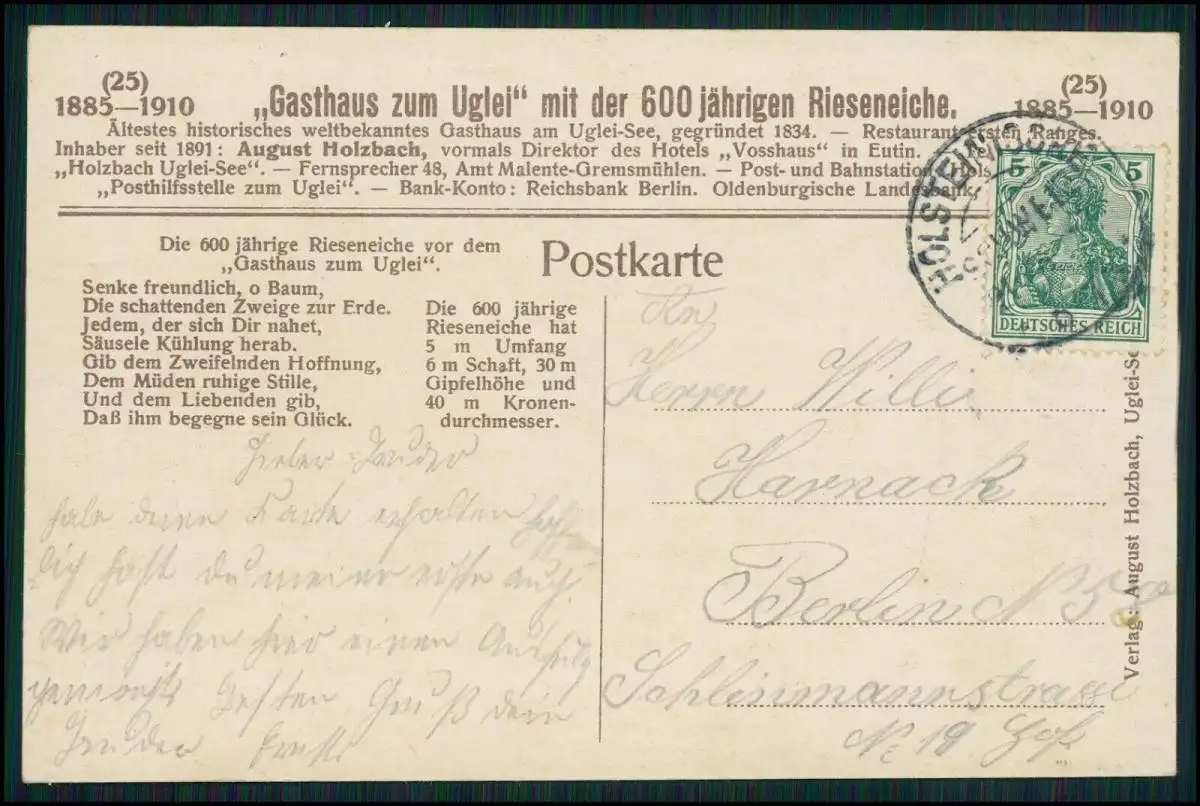 (25)
1885—1910
„Gasthaus zum Uglei“ mit der 600 jährigen Rieseneiche.
(25)
1885—1910
Ältestes historisches weltbekanntes Gasthaus am Uglei-See, gegründet 1834. — Restaurant ersten Ranges.
Inhaber seit 1891: August Holzbach, vormals Direktor des Hotels „Vosshaus“ in Eutin.
„Holzbach Uglei-See“. — Fernsprecher 48, Amt Malente-Gremsmühlen. — Post- und Bahnstation
„Posthilfsstelle zum Uglei“. — Bank-Konto: Reichsbank Berlin. Oldenburgische Landesbank,
Die 600 jährige Rieseneiche vor dem
„Gasthaus zum Uglei“.
Senke freundlich, o Baum,
Die schattenden Zweige zur Erde.
Jedem, der sich Dir nahet,
Säusele Kühlung herab.
Gib dem Zweifelnden Hoffnung,
Dem Müden ruhige Stille,
Und dem Liebenden gib,
Daß ihm begegne sein Glück.
Die 600 jährige
Rieseneiche hat
5 m Umfang
6 m Schaft, 30 m
Gipfelhöhe und
40 m Kronen-
durchmesser.
Postkarte
DEUTSCHES REICH
5 5
An
Herrn Willi
Harnack
Berlin N 58
Schlinmannstrasse
No 19 Hof
Lieber Bruder
habe deine Karte erhalten hoffent-
lich hast du meine auch.
Wir haben hier einen Ausflug
gemacht Besten Gruß dein
Bruder
Verlag: August Holzbach, Uglei-S